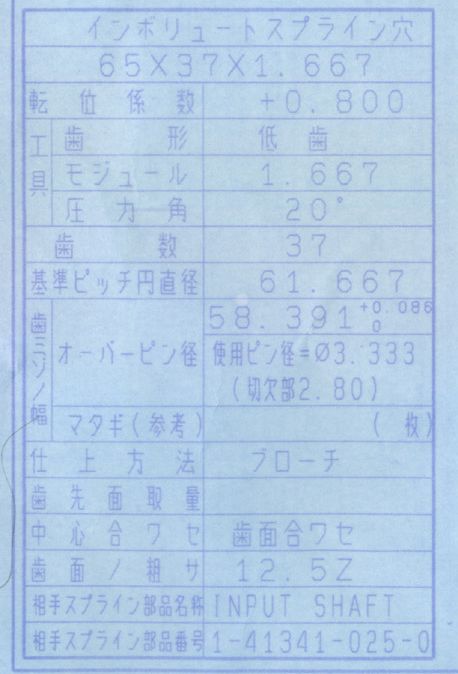 インボリュートスプライン穴
65X37X1.667
転位係数 +0.800
工具 歯形 低歯
モジュール 1.667
圧力角 20°
歯数 37
基準ピッチ円直径 61.667
歯ミゾノ幅 オーバーピン径 58.391 +0.086 0
使用ピン径=Ø3.333
(切欠部2.80)
マタギ(参考) (枚)
仕上方法 ブローチ
歯先面取量
中心合ワセ 歯面合ワセ
歯面ノ粗サ 12.5Z
相手スプライン部品名称 INPUT SHAFT
相手スプライン部品番号 1-41341-025-0